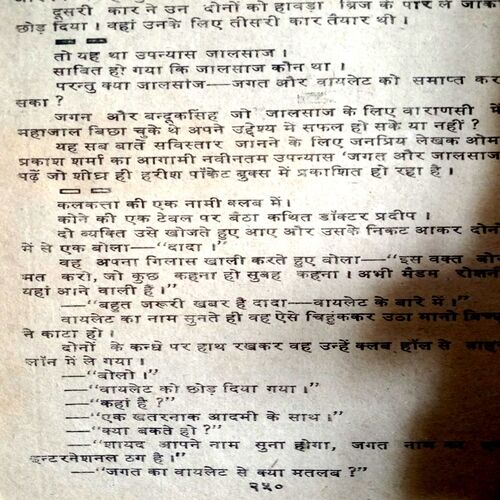 दूसरी कार ने उन दोनों को हावड़ा ब्रिज के पार ले जाक
छोड़ दिया । वहां उनके लिए तीसरी कार तैयार थी ।
तो यह था उपन्यास जालसाज ।
साबित हो गया कि जालसाज कौन था ।
परन्तु क्या जालसाज—जगत और वायलेट को समाप्त कर
सका ?
जगन और बन्दूकसिंह जो जालसाज के लिए वाराणसी में
महाजाल बिछा चुके थे अपने उद्देश्य में सफल हो सके या नहीं ?
यह सब बातें सविस्तार जानने के लिए जनप्रिय लेखक ओम
प्रकाश शर्मा का आगामी नवीनतम उपन्यास ‘जगत और जालसाज
पढ़ें जो शीघ्र ही हरीश पॉकेट बुक्स में प्रकाशित हो रहा है ।
कलकत्ता की एक नामी क्लब में ।
कोने की एक टेबल पर बैठा कथित डॉक्टर प्रदीप ।
दो व्यक्ति उसे खोजते हुए आए और उसके निकट आकर दोनों
में से एक बोला—“दादा ।”
वह अपना गिलास खाली करते हुए बोला—“इस वक्त बोर
मत करो, जो कुछ कहना हो सुबह कहना । अभी मैडम रोशन
यहां आने वाली हैं ।”
—“बहुत जरूरी खबर है दादा—वायलेट के बारे में ।”
वायलेट का नाम सुनते ही वह ऐसे चिहुंककर उठा मानो बिच्छू
ने काटा हो ।
दोनों के कन्धे पर हाथ रखकर वह उन्हें क्लब हॉल से बाहर
लॉन में ले गया ।
—“बोलो ।”
—“वायलेट को छोड़ दिया गया ।”
—“कहां है ?”
—“एक खतरनाक आदमी के साथ ।”
—“क्या बकते हो ?”
—“शायद आपने नाम सुना होगा, जगत नाम का
इन्टरनेशनल ठग है ।”
—“जगत का वायलेट से क्या मतलब ?”
२५०